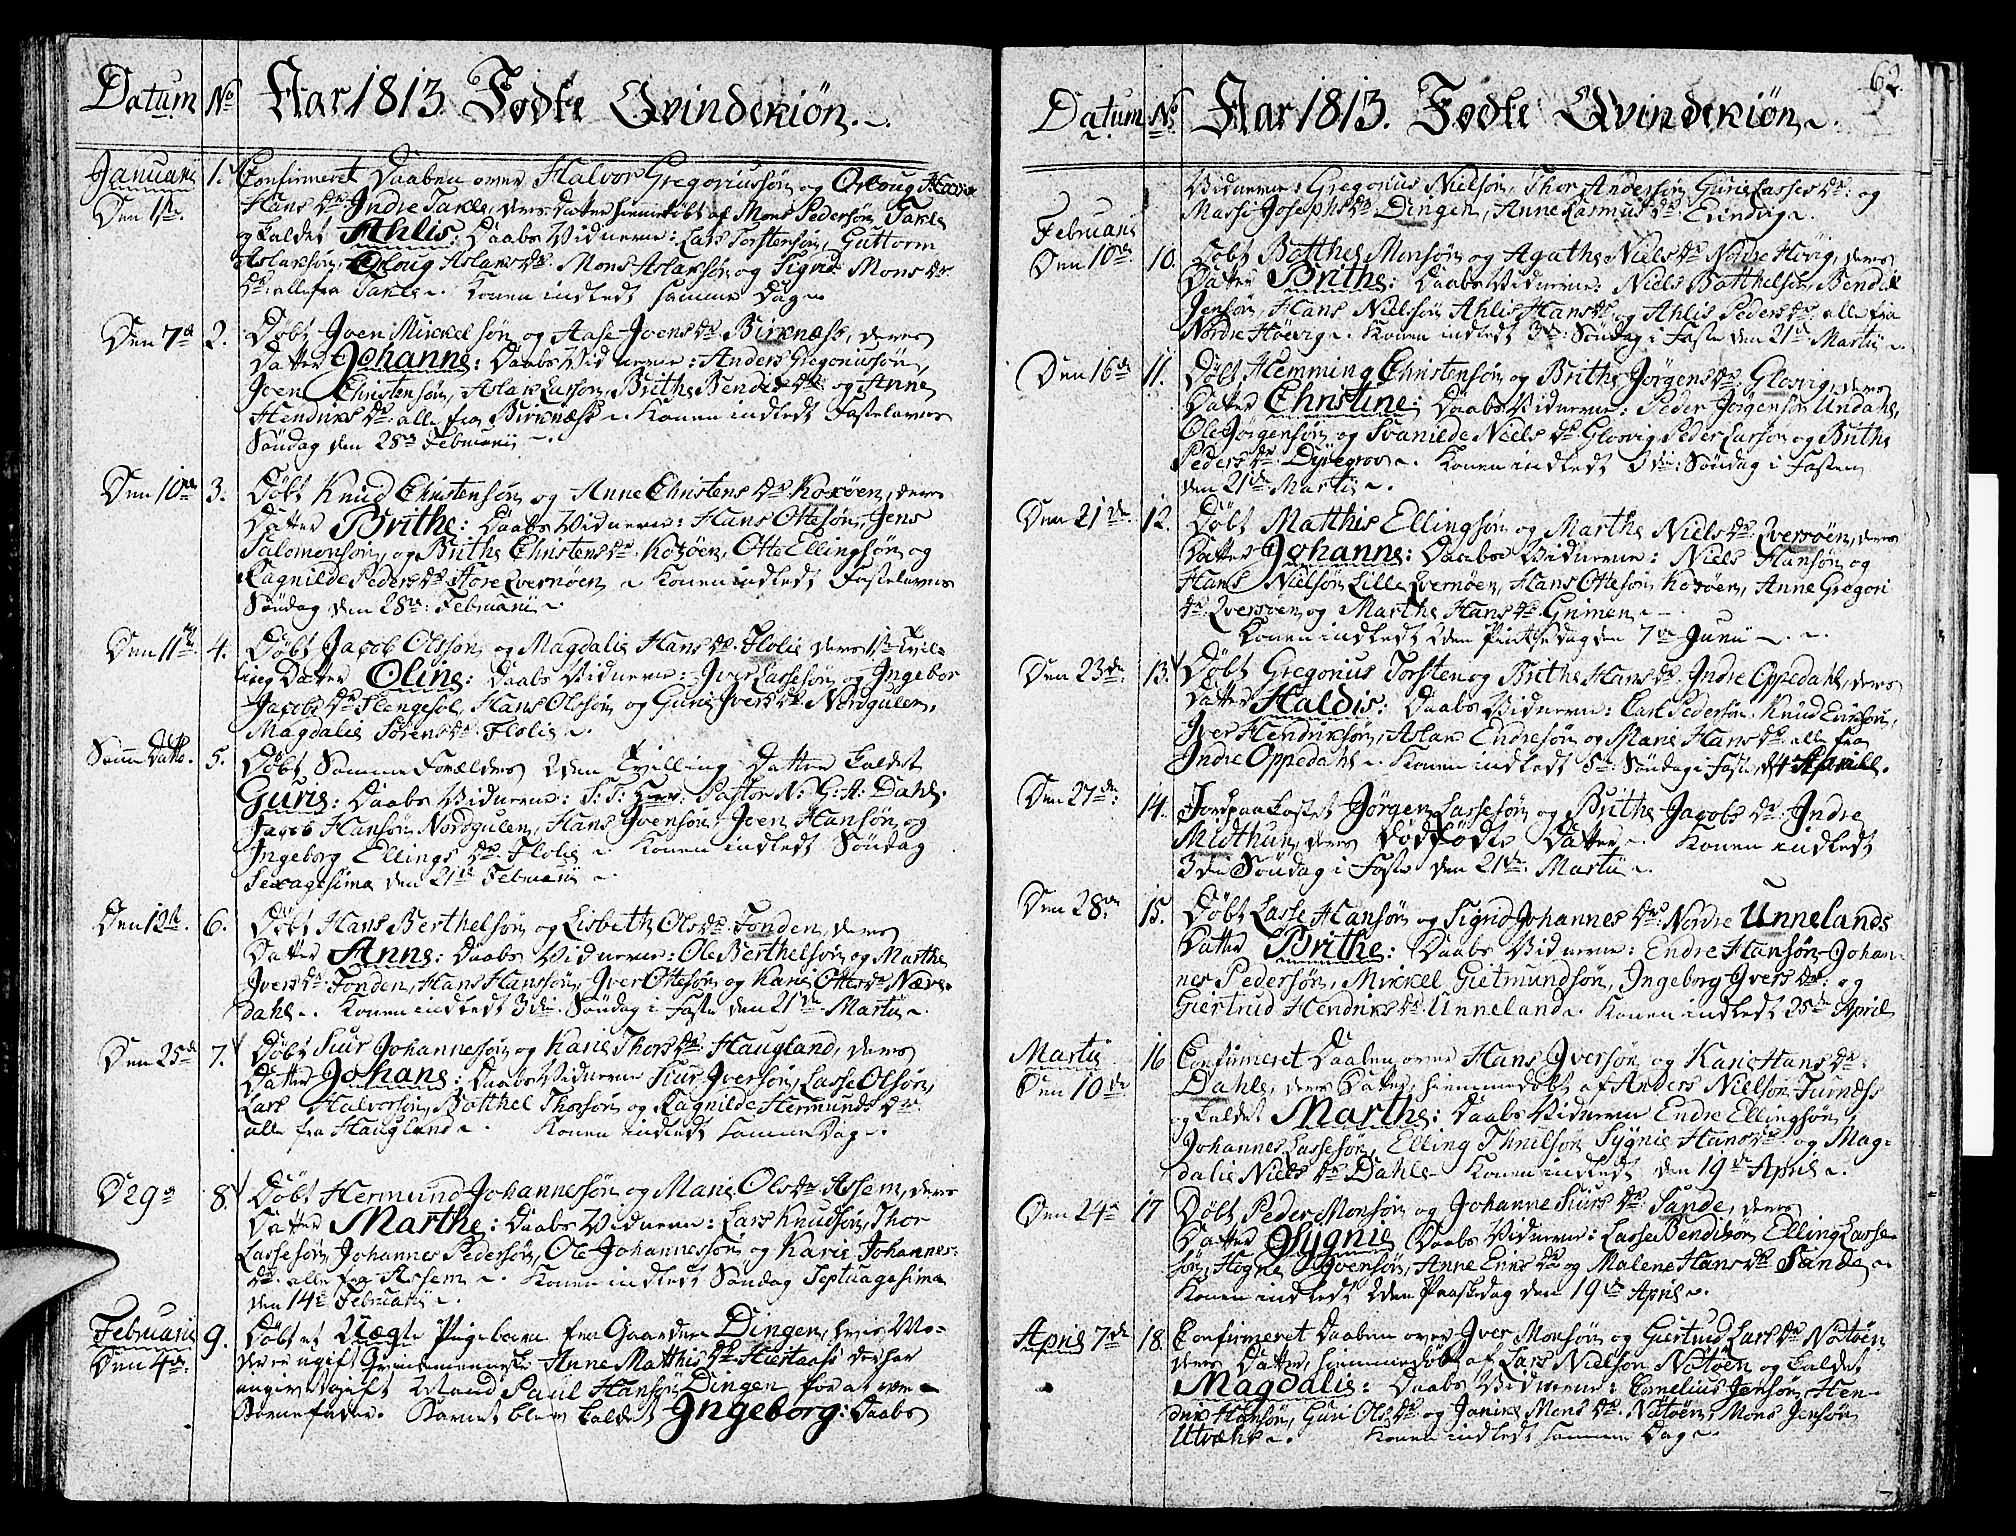 Datum No Aar 1813. Fødte Qvindekiön.
Januarii 1. Confirmeret Daaben over Halvor Gregoriussön og Orloug
Den 1ste Hans Dr Indre Takle, deres Datter hiemmedöbt af Mons Pedersön Takle
og kaldet Ahlis: Daabs Vidnerne: Lars Torstensön, Guttorm
Aslaksön, Orloug Aslaks Dr. Mons Aslaksön og Sigrid Mons Dr.
alle fra Takle. Konen indledt samme Dag.
Den 7de 2. Döbt Joen Mickelsön og Aase Joens Dr Birknæss, deres
Datter Johanne: Daabs Vidnerne: Anders Gregoriussön,
Joen Christensön, Aslak Larsön, Brithe Bendix Dr: og Anne
Hendriks Dr: alle fra Birknæss. Konen indledt Fastelavns
Söndag den 28de Februarii.
Den 10de 3. Döbt Knud Christensön og Anne Christens Dr Koxöen, deres
Datter Brithe: Daabs Vidnerne: Hans Ottesön, Jens
Salomonsön, og Brithe Christens Dr. Koxöen, Otte Ellingsön og
Ragnilde Peders Dr Store Qvernöen. Konen indledt Fastelavns
Söndag den 28de: Februarii.
Den 11te 4. Döbt Jacob Olsön og Magdalis Hans Dr. Flolie deres 1ste Tvil-
ling Datter Oline: Daabs Vidnerne: Iver Larssön og Ingebor
Jacobs Dr Slengesol, Hans Olsön og Guris Ivers Dr. Nordgulen,
Magdalis Sörens Dr. Flolie.
Samme Datto. 5. Döbt Samme Forældres 2den Tvilling Datter kaldet
Guris: Daabs Vidnerne: S: T: Herr: Pastor N: G: A: Dahl.
Jacob Hansön Nordgulen, Hans Joensön, Joen Hansön og
Ingeborg Ellings Dr. Flolie. Konen indledt Söndag
Sexagesima den 21de Februarii.
Den 12te. 6. Döbt Hans Berthelsön og Lisbeth Ols Dr. Fonden, deres
Datter Anne: Daabs Vidnerne: Ole Berthelsön og Marthe
Ivers Dr Fonden, Hans Hanssön, Iver Ottesön og Karie Ottes Dr Næve-
dahl. Konen indledt 3die Söndag i Faste den 21de Martii.
Den 25de 7. Döbt Siur Johannessön og Karie Thors Dr. Haugland, deres
Datter Johane: Daabs Vidnerne Siur Iversön, Lasse Olsön,
Lars Halvorsön, Botthel Thorsön og Ragnilde Hermunds Dr.
alle fra Haugland. Konen indledt samme Dag.
D 29de 8. Döbt Hermund Johannessön og Marie Ols Dr Assem, deres
Datter Marthe: Daabs Vidnerne: Lars Knudsön, Thor
Lassesön, Johannes Pedersön, Ole Johannessön og Karie Johannes-
Dr. alle fra Assem. Konen indledt Söndag Septuagesima
den 14de Februarii.
Februarii 9. Döbt et Uægte Pigebarn fra Gaarden Dingen, hvis Mo-
Den 4de der er ugift Qvindemenneske Anne Matthis Dr. Hiertaass der har
angivet gift Mand Paul Hansön Dingen for at være
Barnefader. Barnet blev kaldet Ingeborg: Daabs
62.
Datum No Aar 1813. Fødte Qvindekiön.
Vidnerne: Gregorius Nielsön, Thor Andersön, Guris Lasses Dr. og
Massi Josephs Dr Dingen, Anne Rasmus Dr. Evindvig.
Februarii
Den 10de 10. Döbt Botthel Monsön og Agathe Niels Dr. Nordre Höevig, deres
Datter Brithe: Daabs Vidnerne: Niels Botthelsön, Bendix
Jensön, Hans Nielssön Ahlis Hans Dr og Ahlis Peders Dr. alle fra
Nordre Höevig. Konen indledt 3die: Söndag i Faste den 21de Martii.
Den 16de 11. Döbt Hemming Christensön og Brithe Jörgens Dr. Glosvig, deres
Datter Christine: Daabs Vidnerne: Peder Jörgensön Undahl,
Ole Jörgensön og Svanilde Niels Dr. Glosvig Peder Larsön og Brithe
Peders Dr. Dyregrov. Konen indledt 3die: Söndag i Fasten
den 21de Martii.
Den 21de 12. Döbt Matthis Ellingsön og Marthe Niels Dr. Qversöen, deres
Datter Johanne: Daabs Vidnerne: Niels Hansön og
Hans Nielsön Lille Qvernöen, Hans Ottesön Koxöen, Anne Gregori
Dr. Qversöen og Marthe Hans Dr. Grimen.
Konen indledt 2den Pintsedag den 7de Junii.
Den 23de 13. Döbt Gregorius Torsten og Brithe Hans Dr. Indre Oppedahl, deres
Datter Haldis: Daabs Vidnerne: Carl Pedersön, Knud Erichsön,
Iver Hendriksön, Aslak Endresön og Marie Hans Dr. alle fra
Indre Oppedahl. Konen indledt 5te Söndag i Faste, d 4 Aprill.
Den 27de: 14. Jordpaakastet Jörgen Lassesön og Brithe Jacobs Dr. Indre
Midthun, deres Dödfödte Datter. Konen indledt
3die Söndag i Faste den 21de. Martii.
Den 28de 15. Döbt Lasse Hansön og Sigrid Johannes Dr. Nordre Unnelands
Datter Brithe: Daabs Vidnerne: Endre Hansön Johan-
nes Pedersön, Mickel Gietmundsön, Ingeborg Ivers Dr: og
Giertrud Hendriks Dr. Unneland. Konen indledt 25de April
Martii 16 Confirmeret Daaben over Hans Iversön og Karie Hans Dr.
Den 10de Dahle, deres Datter, hiemmedöbt af Anders Nielsön Furnæss
og kaldet Marthe: Daabs Vidnerne Endre Ellingsön
Johannes Lassesön, Elling Thnilsön Sygnie Hans Dr. og Mag-
dalie Niels Dr Dahle. Konen indledt den 19de April.
Den 24de 17 Döbt Peder Monsön og Johanne Siurs Dr. Sande, deres
Datter Sygnie Daabs Vidnerne: Lasse Bendixsön Elling Lasse-
sön, Hogne Joensön, Anne Erics Dr. og Malene Hans Dr. Sande.
Konen indledt 2den Paaskedag den 19de April.
April 7de 18. Confirmeret Daaben over Iver Monsön og Giertrud Lars Dr Nötöen
deres Datter, hiemmedöbt af Lars Nielsön Nötöen og kaldet
Magdalis: Daabs Vidnerne: Cornelius Jensön, Hen-
drik Hansön, Guri Ols Dr. og Janike Mons Dr. Nötöen, Mons Jensön
Utvække. Konen indledt samme Dag.